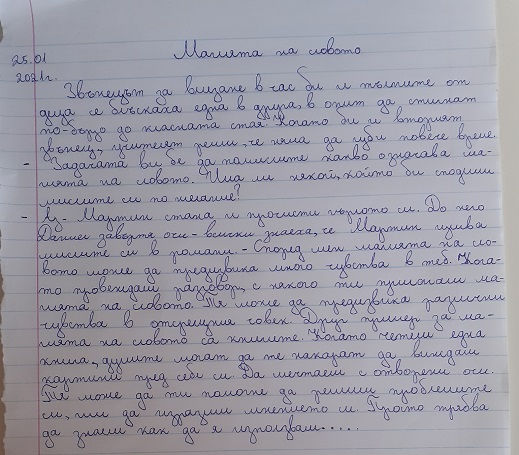 25.01
2021г.
Магията на словото
Звънецът за влизане в час би и тълпите от
деца се блъскаха една в друга, в опит да стигнат
по-бързо до класната стая. Когато би и вторият
звънец, учителят реши, че няма да губи повече време.
- Задачата ви бе да помислите какво означава ма-
гията на словото. Има ли някой, който би споделил
мислите си по желание?
- Аз - Мартин стана и прочисти гърлото си. До него
Даниел завъртя очи - всички знаеха, че Мартин излива
мислите си в романи. - Според мен магията на сло-
вото може да предизвика много чувства в теб. Кога-
то провеждаш разговор с някого ти прилагаш ма-
гията на словото. Тя може да предизвика различни
чувства в отсрещния човек. Друг пример за ма-
гията на словото са книгите. Когато четеш една
книга, думите могат да те накарат да виждаш
картини пред себе си. Да мечтаеш с отворени очи.
Тя може да ти помогне да решиш проблемите
си, или да изразиш мнението си. Просто трябва
да знаеш как да я използваш.....